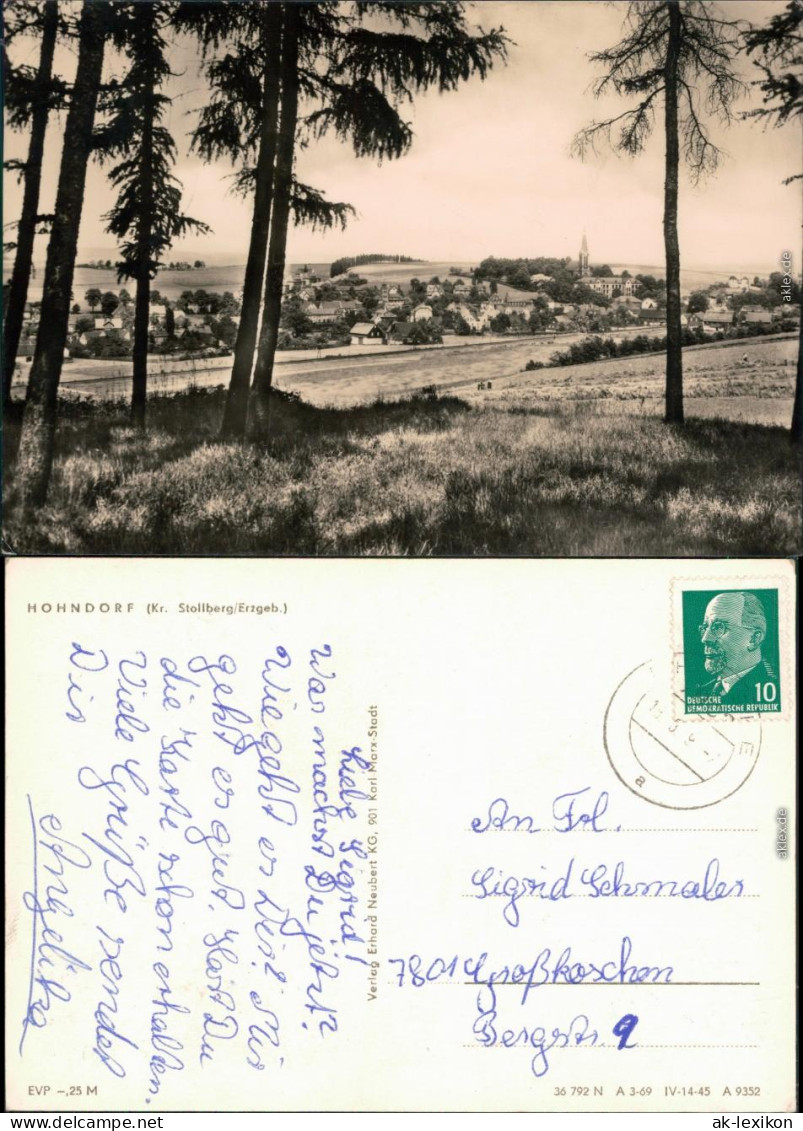 HOHNDORF (Kr. Stollberg/Erzgeb.)
Liebe Sigrid!
Was machst Du jetzt?
Wie geht es Dir? Mir
geht es gut. Hast Du
die Karte schon erhalten.
Viele Grüße sendet
Dir
Angelika
Verlag Erhard Neubert KG, 901 Karl Marx-Stadt
10
DEUTSCHE
DEMOKRATISCHE REPUBLIK
a
An Frl.
Sigrid Schmaler
7801 Großkoschen
Bergstr. 9
EVP –,25 M
36 792 N A 3-69 IV-14-45 A 9352
aklex.de
aklex.de
www.delcampe.net
ak-lexikon